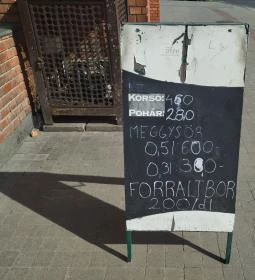 KORSÓ: 460
POHÁR: 280
MEGGYSÖR
0,5l 600-
0,3l 380-
FORRALT BOR
200/dl